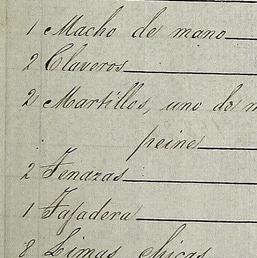 1 Macho de mano
2 Claveros
2 Martillos, uno de m
peine
2 Tenazas
1 Tajadera
8 Limas chicas